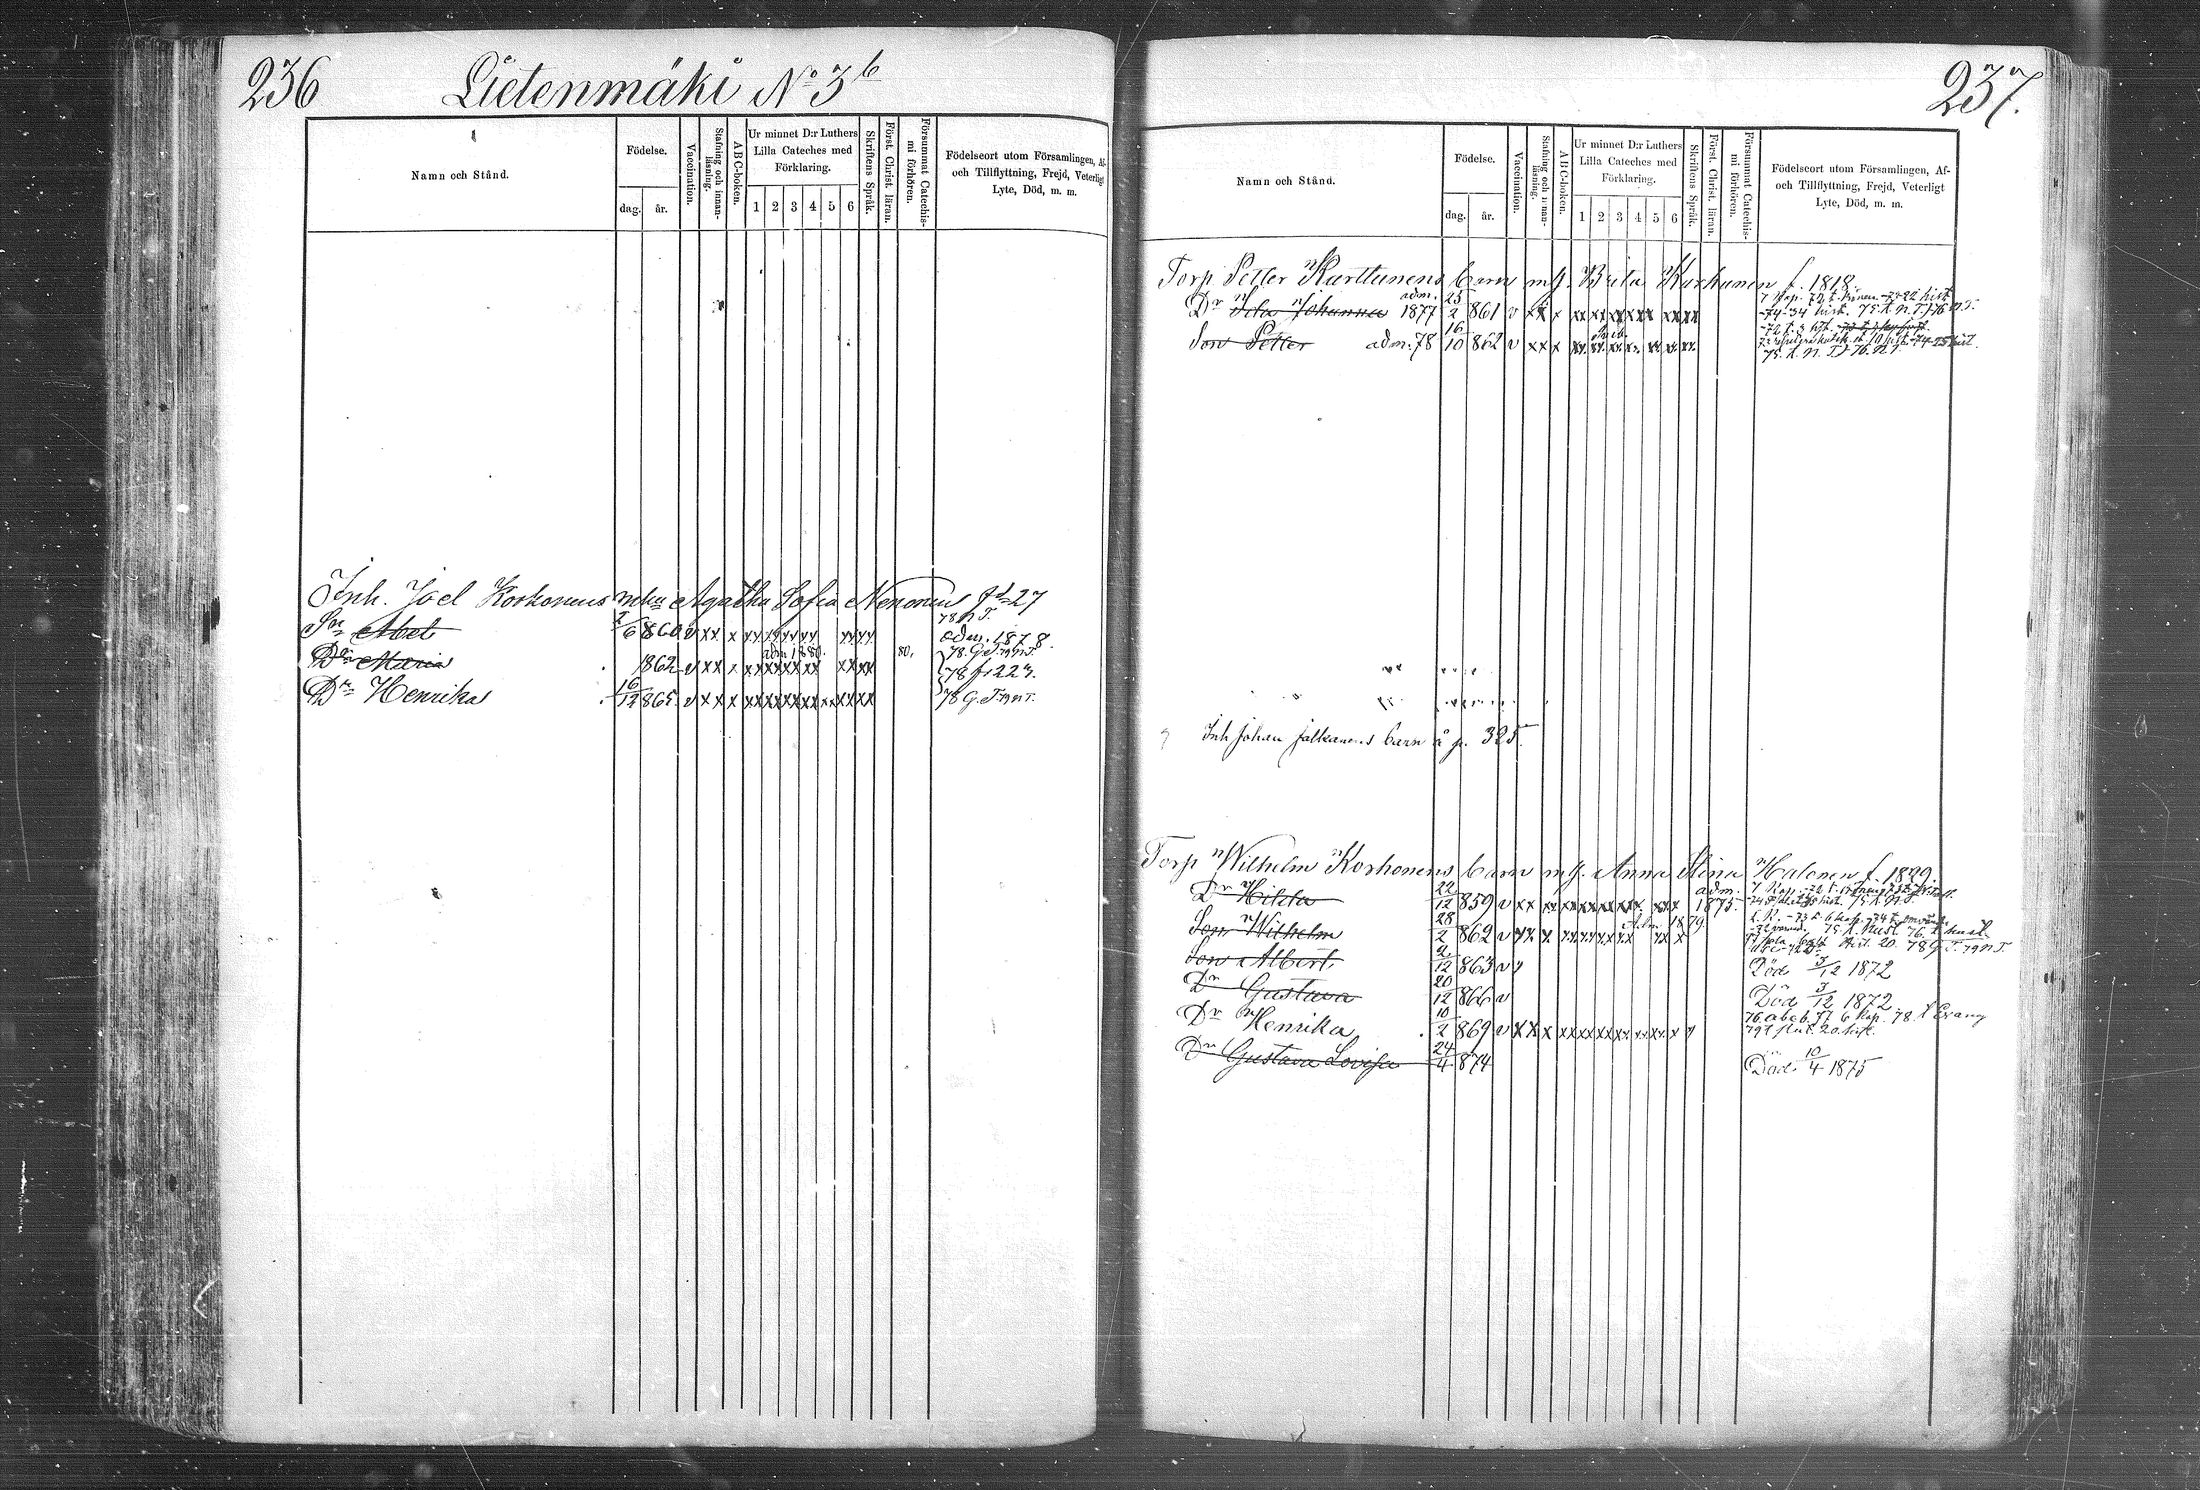 236
Lietenmäki No 3b
Namn och Stånd.
Födelse.
dag.
år.
Vaccination.
Stafning och innan-
läsning.
A B C-boken.
Ur minnet D:r Luthers
Lilla Cateches med
Förklaring.
1 2 3 4 5 6
Skriftens Språk.
Först. Christ. läran.
Försummat Catechis-
mi förhören.
Födelseort utom Församlingen, Af-
och Tillflyttning, Frejd, Veterligt
Lyte, Död, m. m.
Inh. Joel Korhonens enka Agatha Sofia Nenonens fd 27
78 N.T.
Sn Abel 6 860 v xx x adm. 1878.
adm 1880. 80. 78. G.T. 79 N.T.
Dr Maria 1862 v xx x 78 f. 223.
Dr Henrika 16/12 865 v xx x 78 G.T. 79 N.T.
237.
Namn och Stånd.
Födelse.
dag.
år.
Vaccination.
Stafning och innan-
läsning.
A B C-boken.
Ur minnet D:r Luthers
Lilla Cateches med
Förklaring.
1 2 3 4 5 6
Skriftens Språk.
Först. Christ. läran.
Försummat Catechis-
mi förhören.
Födelseort utom Församlingen, Af-
och Tillflyttning, Frejd, Veterligt
Lyte, Död, m. m.
Torp Petter Karttunens barn m g. Brita Karhunen f. 1818.
Dr Johanna adm. 1877 25/2 861 v xx x
-74-34 hist. 75. N.T. 76 N.T.
Son Petter adm. 78 16/10 862 v xx x
75. N.T. 76. N.T.
Inh Johan Jalkanens barn å p. 325.
Torp Wilhelm Korhonens barn m g. Anna Stina Halonen f. 1829.
Dr Hilda 22/12 859 v xx adm. 1875
Son Wilhelm 28/2 862 v xx x Adm. 1879
78 G.T. 79 N.T.
Son Albert 2/12 863 v Död 3/12 1872
Dr Gustava 20/12 866 v Död 3/12 1872
Dr Henrika 10/2 869 v xx x 76. abc b. 77 6 kap. 78 Evang
79 20 hist.
Dr Gustava Lovisa 24/4 874 Död 10/4 1875